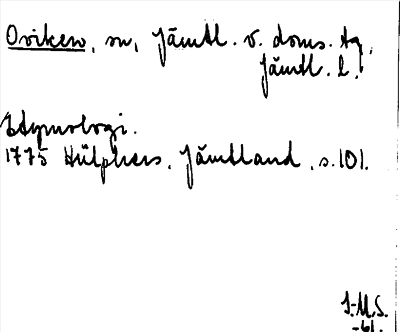 Oviken, sn, Jämtl. v. doms. tg,
Jämtl. l.
Etymologi.
1775 Hülphers, Jämtland, s. 101.
I.M.S.
-61.